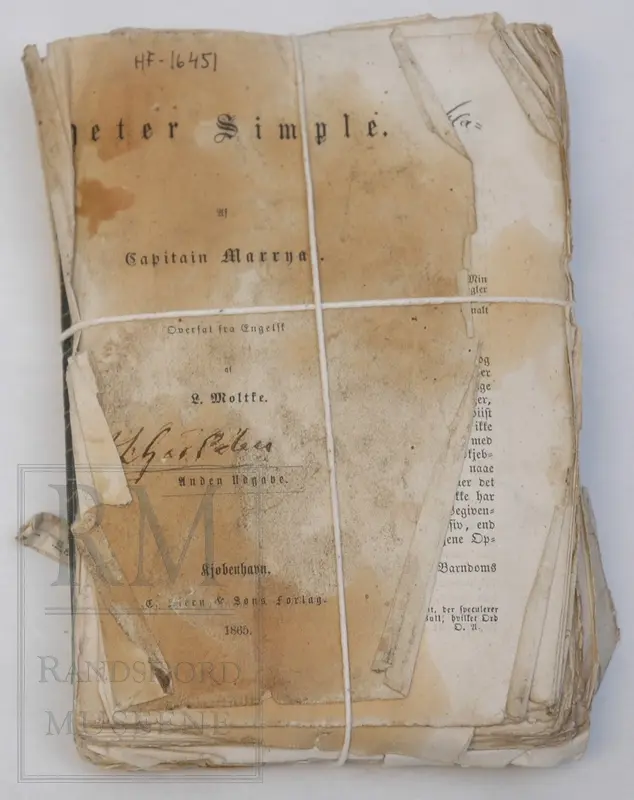 HF-16451
eter Simple.
Af
Capitain Marrya .
Oversat fra Engelsk
af
L. Moltke.
Anden Udgave.
Kjøbenhavn.
& Søns Forlag.
1865.
Min
gler
nalt
og
er
ge
er,
ikke
med
kjeb-
naae
er det
ke har
Begiven-
siv, end
gene Op-
Barndoms
at, der speculerer
hvilket Ord
O. A.
RM
RANDSFJORD
MUSEENE